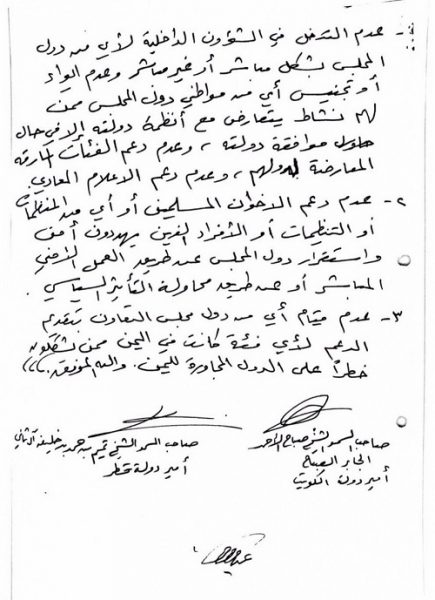 ١- عدم التدخل في الشؤون الداخلية لأي من دول
المجلس بشكل مباشر أو غير مباشر وعدم إيواء
أو تجنيس أي من مواطني دول المجلس ممن
لهم نشاط يتعارض مع أنظمة دولته إلا في حال
موافقة دولته ، وعدم دعم الفئات المارقة
المعارضة لدولهم ، وعدم دعم الاعلام المعادي.
٢- عدم دعم الاخوان المسلمين أو أي من المنظمات
أو التنظيمات أو الأفراد الذين يهددون أمن
واستقرار دول المجلس عن طريق العمل الأمني
المباشر أو عن طريق محاولة التأثير السياسي.
٣- عدم قيام أي من دول مجلس التعاون بتقديم
الدعم لأي فئة كانت في اليمن ممن يشكلون
خطراً على الدول المجاورة لليمن. والله الموفق،،،
صاحب السمو الشيخ صباح الأحمد
الجابر الصباح
أمير دولة الكويت
صاحب السمو الشيخ تميم بن حمد بن خليفة آل ثاني
أمير دولة قطر